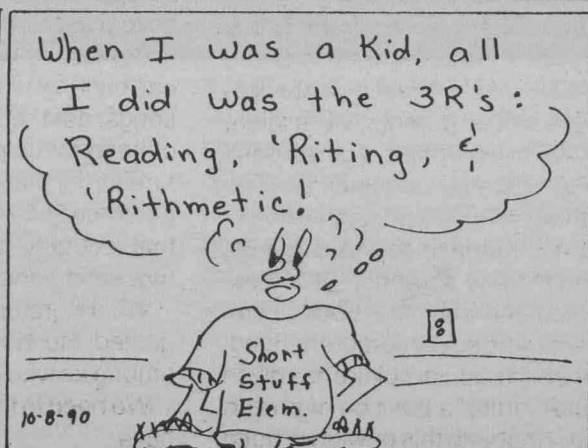 When I was a Kid, all
I did was the 3R's:
Reading, Riting, &
Rithmetic!
Short
Stuff
Elem.
10-8-90